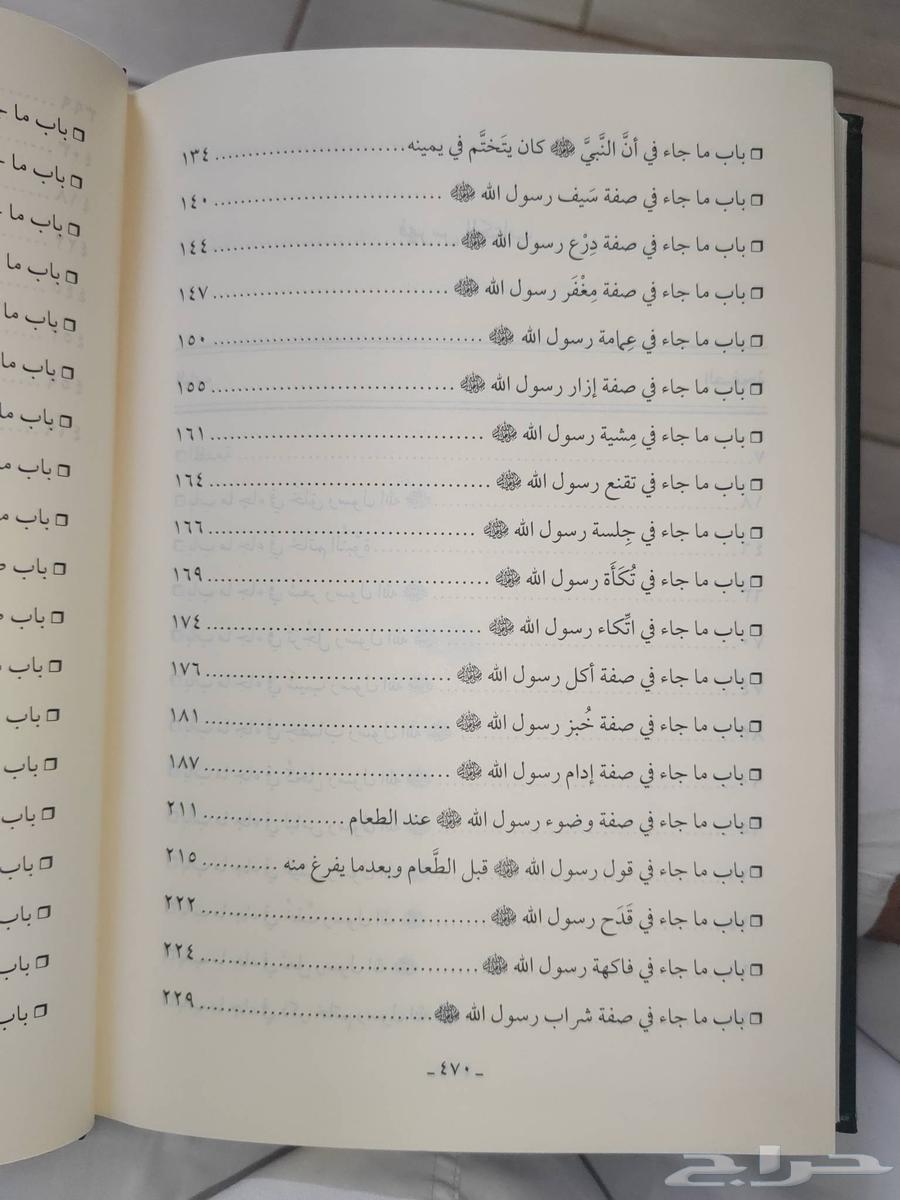 ❒ باب ما جاء في أنَّ النَّبيَّ ﷺ كان يتَختَّم في يمينه ........................ ١٣٤
❒ باب ما جاء في صفة سَيف رسول الله ﷺ ........................ ١٤٠
❒ باب ما جاء في صفة دِرْع رسول الله ﷺ ........................ ١٤٤
❒ باب ما جاء في صفة مِغْفَر رسول الله ﷺ ........................ ١٤٧
❒ باب ما جاء في عِمامة رسول الله ﷺ ........................ ١٥٠
❒ باب ما جاء في صفة إزار رسول الله ﷺ ........................ ١٥٥
❒ باب ما جاء في مِشية رسول الله ﷺ ........................ ١٦١
❒ باب ما جاء في تقنع رسول الله ﷺ ........................ ١٦٤
❒ باب ما جاء في جِلسة رسول الله ﷺ ........................ ١٦٦
❒ باب ما جاء في تُكَأَة رسول الله ﷺ ........................ ١٦٩
❒ باب ما جاء في اتِّكاء رسول الله ﷺ ........................ ١٧٤
❒ باب ما جاء في صفة أكل رسول الله ﷺ ........................ ١٧٦
❒ باب ما جاء في صفة خُبز رسول الله ﷺ ........................ ١٨١
❒ باب ما جاء في صفة إدام رسول الله ﷺ ........................ ١٨٧
❒ باب ما جاء في صفة وضوء رسول الله ﷺ عند الطعام ................. ٢١١
❒ باب ما جاء في قول رسول الله ﷺ قبل الطَّعام وبعدما يفرغ منه ........... ٢١٥
❒ باب ما جاء في قَدَح رسول الله ﷺ ........................ ٢٢٢
❒ باب ما جاء في فاكهة رسول الله ﷺ ........................ ٢٢٤
❒ باب ما جاء في صفة شراب رسول الله ﷺ ........................ ٢٢٩
ـ ٤٧٠ ـ
❒ باب ما
❒ باب ما
❒ باب ما
❒ باب ما
❒ باب ما
❒ باب ما
❒ باب ما
❒ باب
❒ باب
❒ باب
❒ باب
❒ باب
❒ باب
❒ باب
❒ باب
❒ باب
❒ باب
❒ باب
❒ باب
حراج